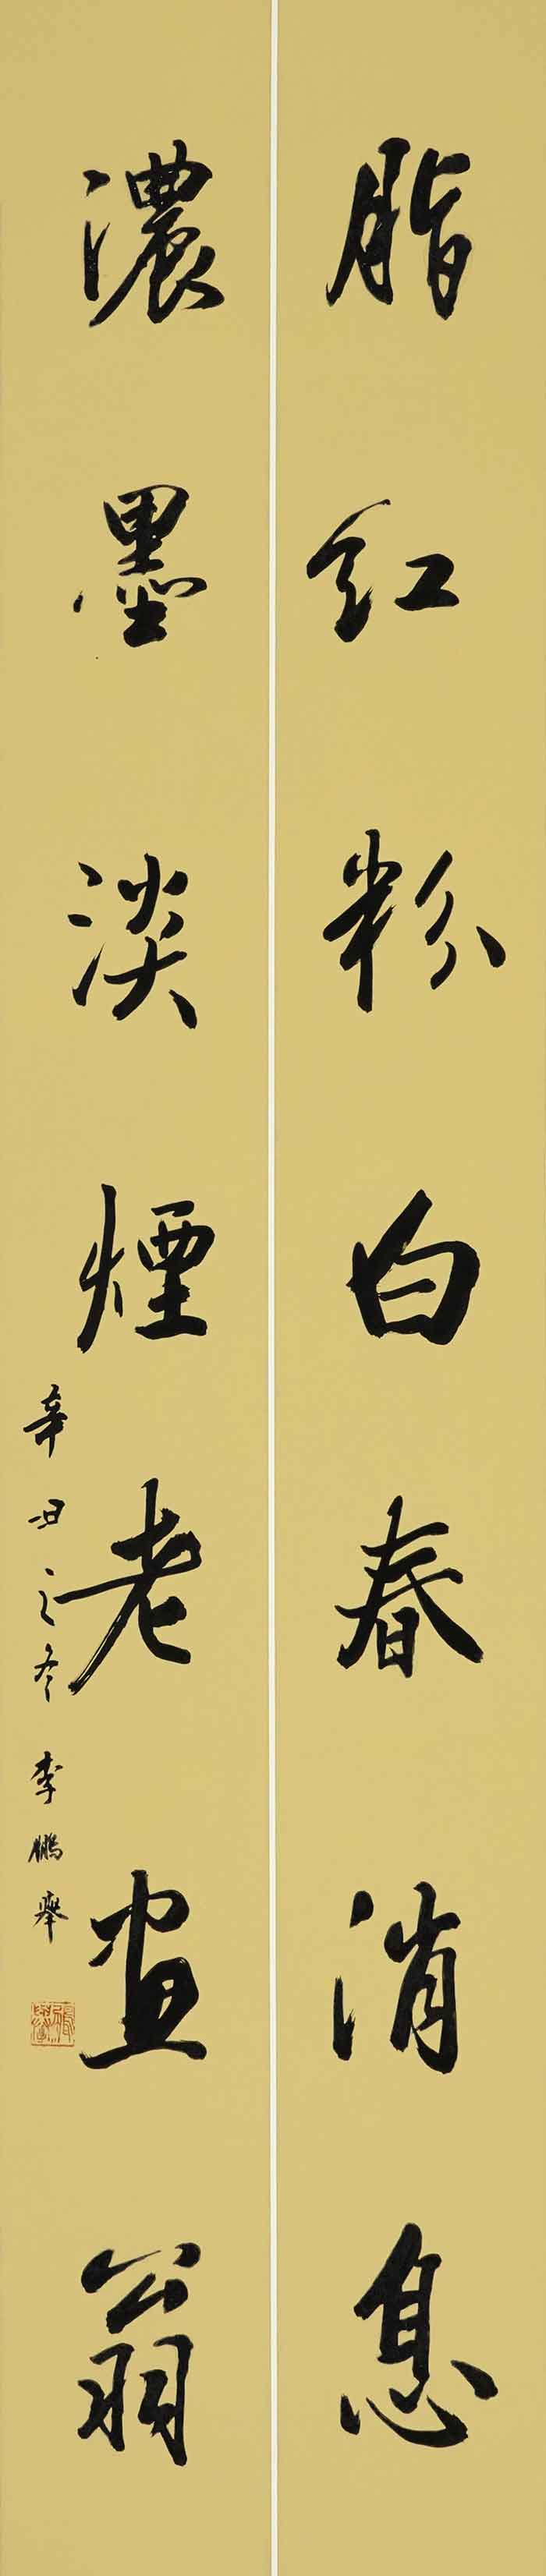 脂红粉白春消息
濃墨淡煙老画翁
辛丑之冬 李鵬舉